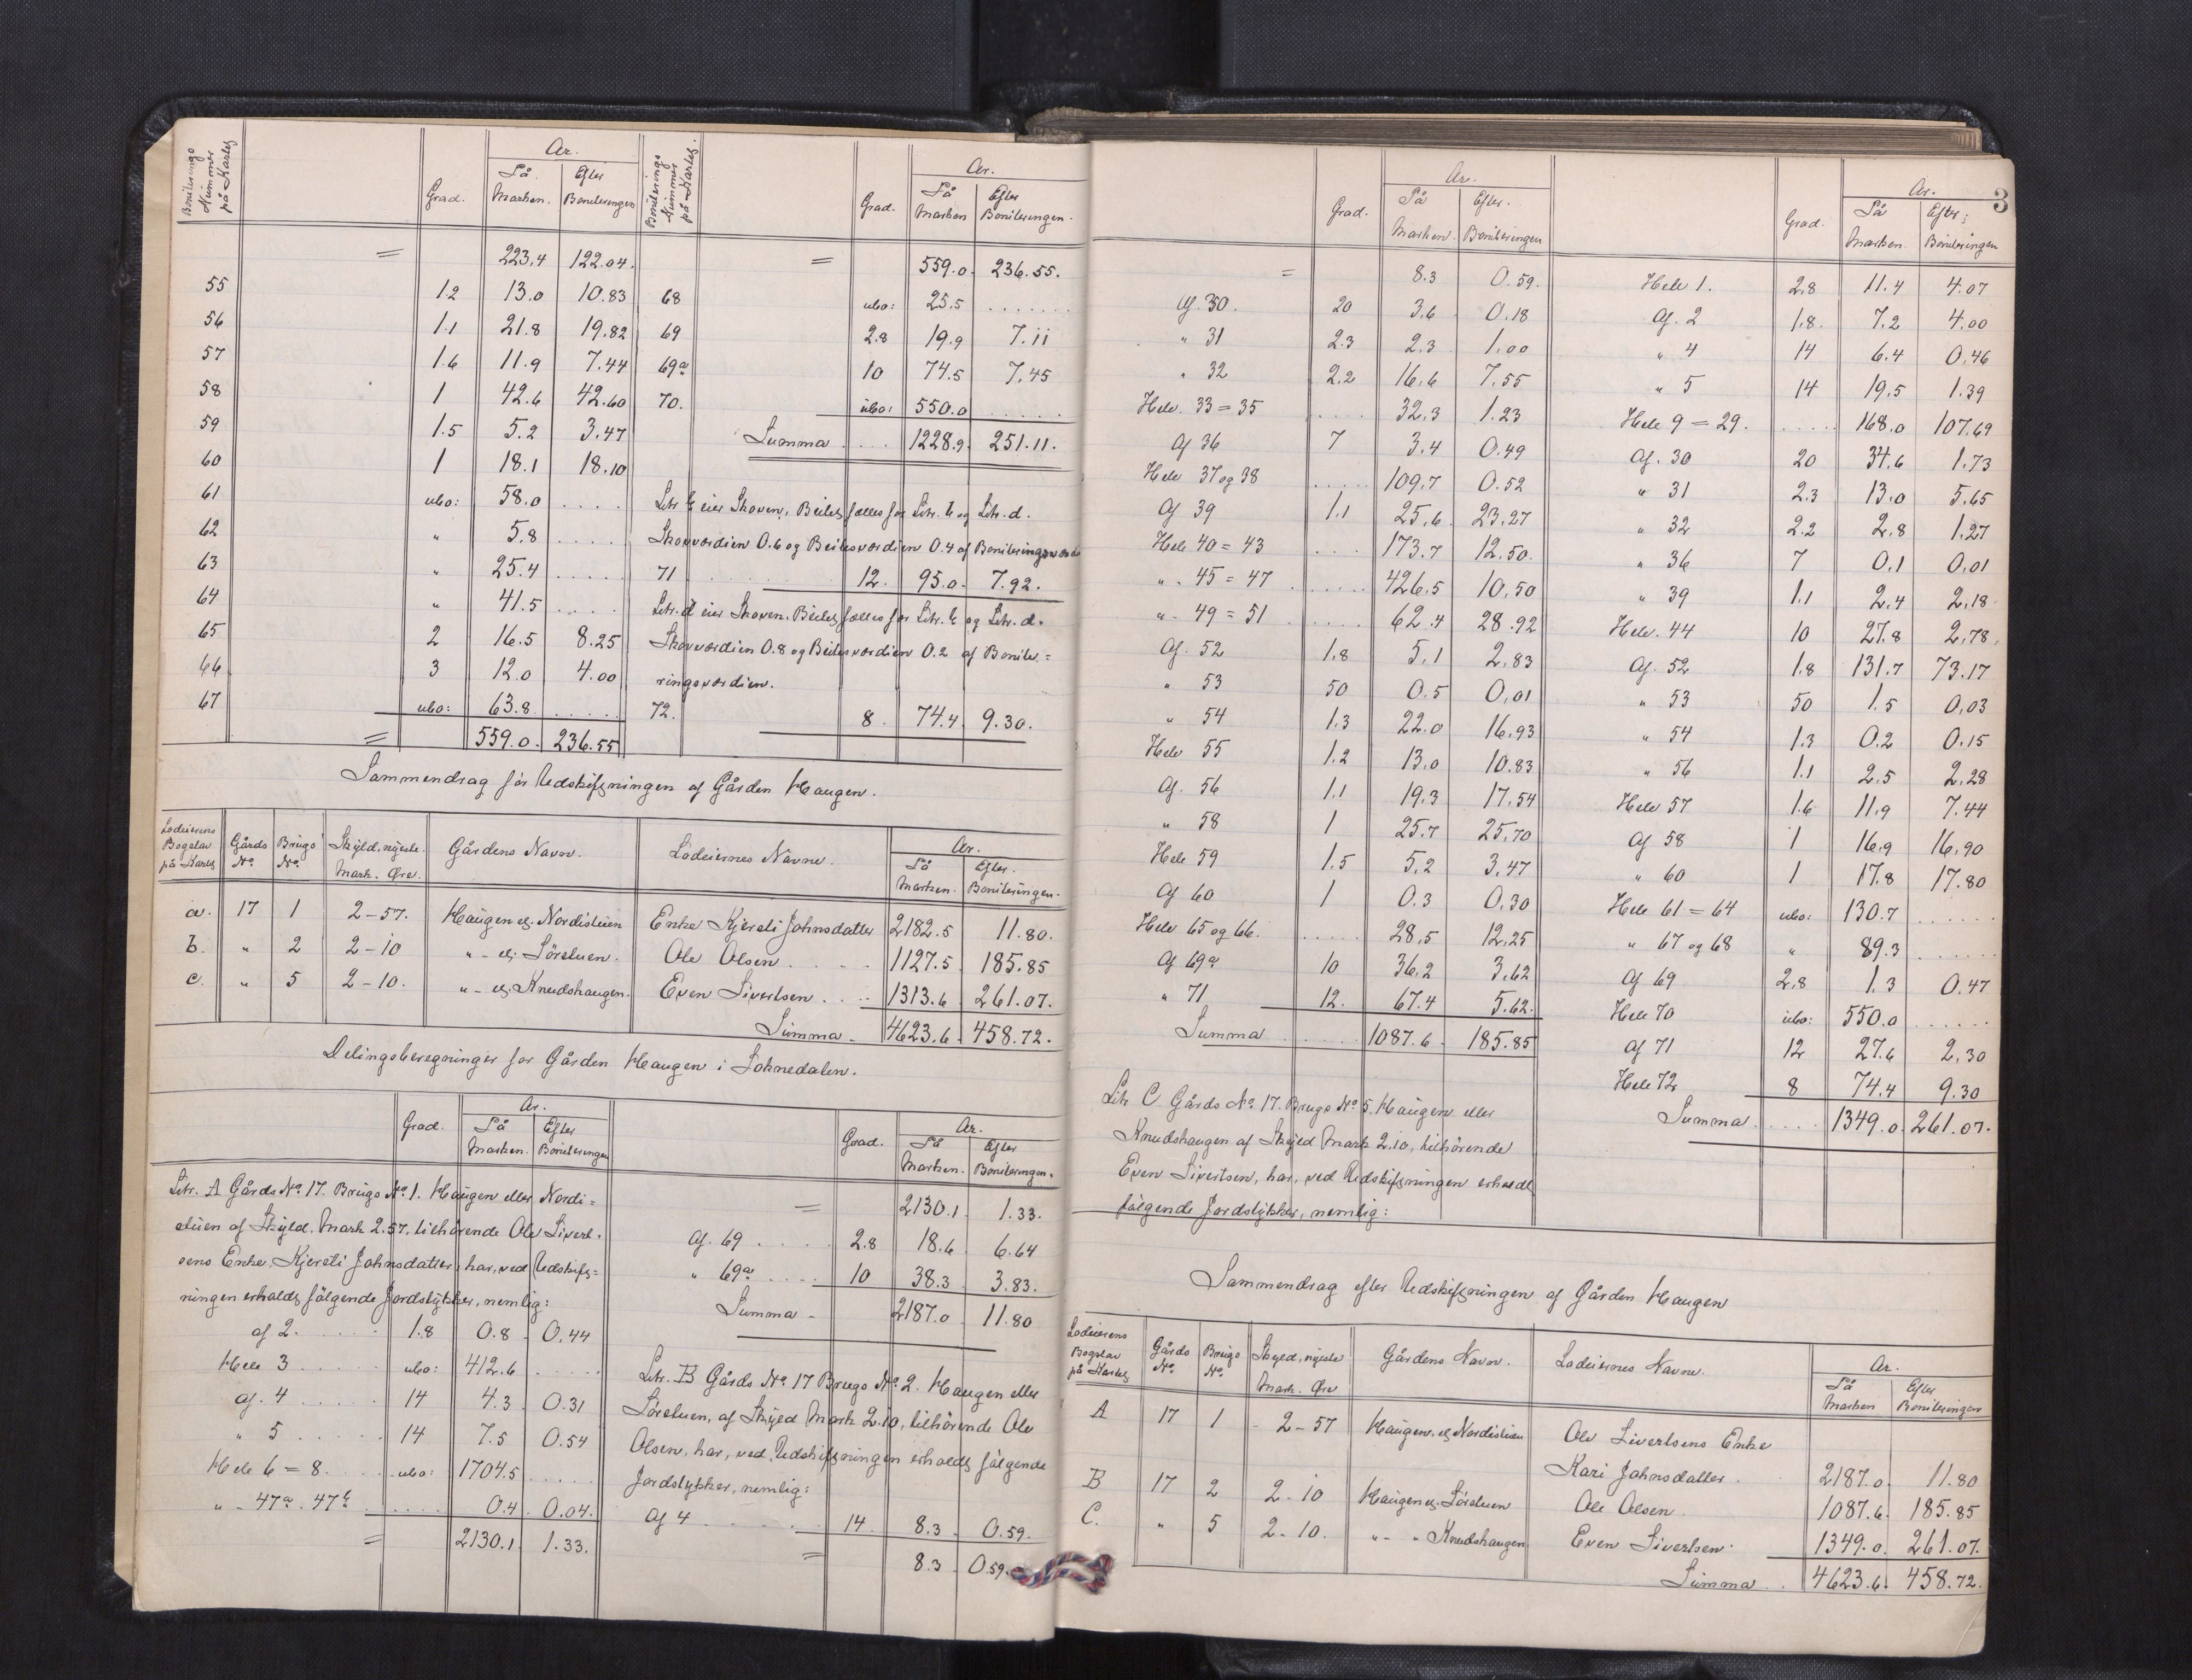 Boniterings Nummer på Kartet | Grad. | Ar. På Marken. | Ar. Efter Boniteringen
= 223.4 122.04.
55 1.2 13.0 10.83
56 1.1 21.8 19.82
57 1.6 11.9 7.44
58 1 42.6 42.60
59 1.5 5.2 3.47
60 1 18.1 18.10
61 ubo: 58.0 . . . .
62 " 5.8 . . . .
63 " 25.4 . . . .
64 " 41.5 . . . .
65 2 16.5 8.25
66 3 12.0 4.00
67 ubo: 63.8 . . . .
= 559.0. 236.55
Boniterings Nummer på Kartet. | Grad. | Ar. På Marken | Ar. Efter Boniteringen.
= 559.0. 236.55.
68 ubo: 25.5 . . . .
69 2.8 19.9 7.11
69a 10 74.5 7.45
70. ubo: 550.0 . . . .
Summa . . . . 1228.9. 251.11.
Litr. b eier Skoven, Beitet fælles for Litr. b og Litr. d.
Skovværdien 0.6 og Beitesværdien 0.4 af Boniteringsværd
71 12. 95.0. 7.92.
Litr. d eier Skoven. Beitet fælles for Litr. b og Litr. d.
Skovværdien 0.8 og Beitesværdien 0.2 af Bonite=
ringsværdien.
72. 8. 74.4. 9.30.
Sammendrag før Udskiftningen af Gården Haugen.
Lodeierens Bogstav på Kartet | Gårds No. | Brugs No. | Skyld, nyeste. Mark. Øre. | Gårdens Navn. | Lodeiernes Navne. | Ar. På Marken. | Ar. Efter. Boniteringen.
a. 17 1 2-57. Haugen ell. Nordistuen Enke Kjersti Johnsdatter 2182.5 11.80.
b. " 2 2-10 " - ell. Sörstuen. Ole Olsen . . . . 1127.5. 185.85
c. " 5 2-10. " - ell. Knudshaugen. Even Sivertsen . . . . 1313.6. 261.07.
Summa . 4623.6. 458.72.
Delingsberegninger for Gården Haugen i Soknedalen.
Grad. | Ar. På Marken. | Ar. Efter Boniteringen
Litr. A Gårds No. 17. Brugs No. 1. Haugen eller Nordi=
stuen af Skyld. Mark 2.57, tilhörende Ole Sivert-
sens Enke, Kjersti Johnsdatter, har, ved Udskift=
ningen erholdt fölgende Jordstykker, nemlig:
af 2. . . . . 1.8 0.8. 0.44
Hele 3 . . . . ubo: 412.6. . . . .
af. 4 . . . . 14 4.3. 0.31
" 5 . . . . 14 7.5 0.54
Hele 6 = 8. . . . ubo: 1704.5 . . . .
" - 47a. 47b . . . . 0.4. 0.04.
= 2130.1. 1.33.
Grad. | Ar. På Marken. | Ar. Efter Boniteringen.
= 2130.1. 1.33.
af. 69 . . . . 2.8 18.6. 6.64
" 69a . . . . 10 38.3. 3.83.
Summa - 2187.0. 11.80
Litr. B Gårds No. 17 Brugs No. 2. Haugen eller
Sörstuen, af Skyld Mark 2.10, tilhörende Ole
Olsen, har, ved Udskiftningen erholdt fölgende
Jordstykker, nemlig:
Af 4 . . . . 14. 8.3. 0.59.
= 8.3. 0.59.
3
Grad. | Ar. På Marken. | Ar. Efter. Boniteringen
= 8.3 0.59.
Af. 30. 20 3.6 0.18
" 31 2.3 2.3 1.00
" 32 2.2 16.6 7.55
Hele. 33 = 35 . . . . 32.3 1.23
Af 36 7 3.4 0.49
Hele 37 og 38 . . . . 109.7 0.52
Af 39 1.1 25.6. 23.27
Hele 40 = 43 . . . . 173.7 12.50.
" - 45 = 47 . . . . 426.5 10.50
" - 49 = 51 . . . . 62.4 28.92
Af. 52 1.8 5.1 2.83
" 53 50 0.5 0.01
" 54 1.3 22.0 16.93
Hele 55 1.2 13.0 10.83
Af. 56 1.1 19.3 17.54
" 58 1 25.7 25.70
Hele 59 1.5 5.2 3.47
Af 60 1 0.3 0.30
Hele 65 og 66. . . . . 28.5 12.25
Af 69a 10 36.2 3.62
" 71 12. 67.4 5.62.
Summa . . . . 1087.6. 185.85
Litr C. Gårds No. 17. Brugs No. 5. Haugen eller
Knudshaugen af Skyld Mark 2.10, tilhörende
Even Sivertsen, har, ved Udskiftningen erholdt
fölgende Jordstykker, nemlig:
Grad. | Ar. På Marken. | Ar. Efter: Boniteringen
Hele 1. 2.8 11.4 4.07
Af. 2 1.8. 7.2 4.00
" 4 14 6.4 0.46
" 5 14 19.5 1.39
Hele 9 = 29. . . . . 168.0 107.69
Af. 30 20 34.6 1.73
" 31 2.3 13.0 5.65
" 32 2.2 2.8 1.27
" 36 7 0.1 0.01
" 39 1.1 2.4 2.18
Hele. 44 10 27.8 2.78.
Af. 52 1.8 131.7 73.17
" 53 50 1.5 0.03
" 54 1.3 0.2 0.15
" 56 1.1 2.5 2.28
Hele 57 1.6 11.9 7.44
Af 58 1 16.9 16.90
" 60 1 17.8 17.80
Hele 61 = 64 ubo: 130.7 . . . .
" 67 og 68 " 89.3 . . . .
Af 69 2.8 1.3 0.47
Hele 70 ubo: 550.0 . . . .
Af 71 12 27.6 2.30
Hele 72 8 74.4 9.30
Summa . . . . 1349.0. 261.07.
Sammendrag efter Udskiftningen af Gården Haugen
Lodeierens Bogstav på Kartet | Gårds No. | Brugs No. | Skyld, nyeste Mark. Øre | Gårdens Navn. | Lodeiernes Navne. | Ar. På Marken | Ar. Efter Boniteringen
A 17 1 2-57 Haugen. ell. Nordistuen Ole Sivertsens Enke
Kari Johnsdatter. 2187.0. 11.80
B 17 2 2-10 Haugen ell. Sörstuen Ole Olsen 1087.6. 185.85
C. " 5 2-10. " - " Knudshaugen Even Sivertsen 1349.0. 261.07.
Summa . 4623.6. 458.72.